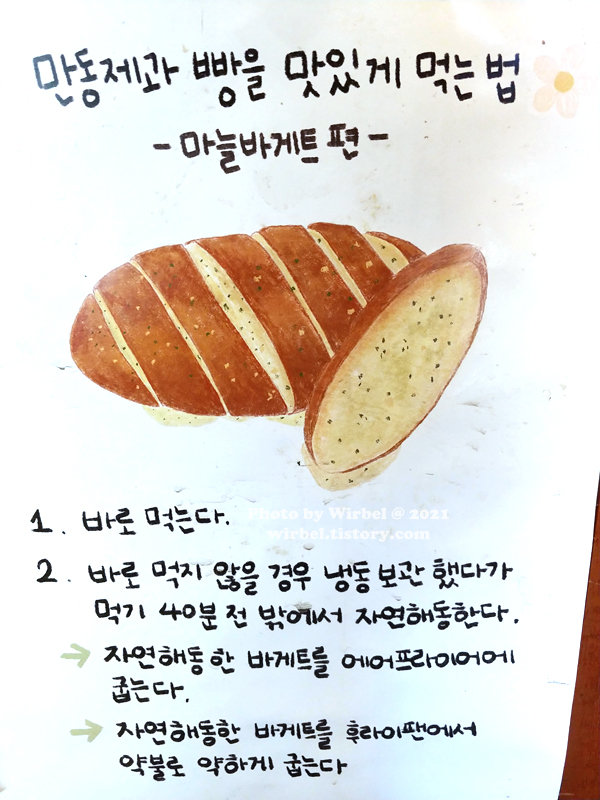 만동제과 빵을 맛있게 먹는 법
- 마늘바게트 편 -
Photo by Wirbel @ 2021
wirbel.tistory.com
1. 바로 먹는다.
2. 바로 먹지 않을 경우 냉동보관 했다가
먹기 40분 전 밖에서 자연해동한다.
→ 자연해동한 바게트를 에어프라이어에
굽는다.
→ 자연해동한 바게트를 후라이팬에서
약불로 약하게 굽는다